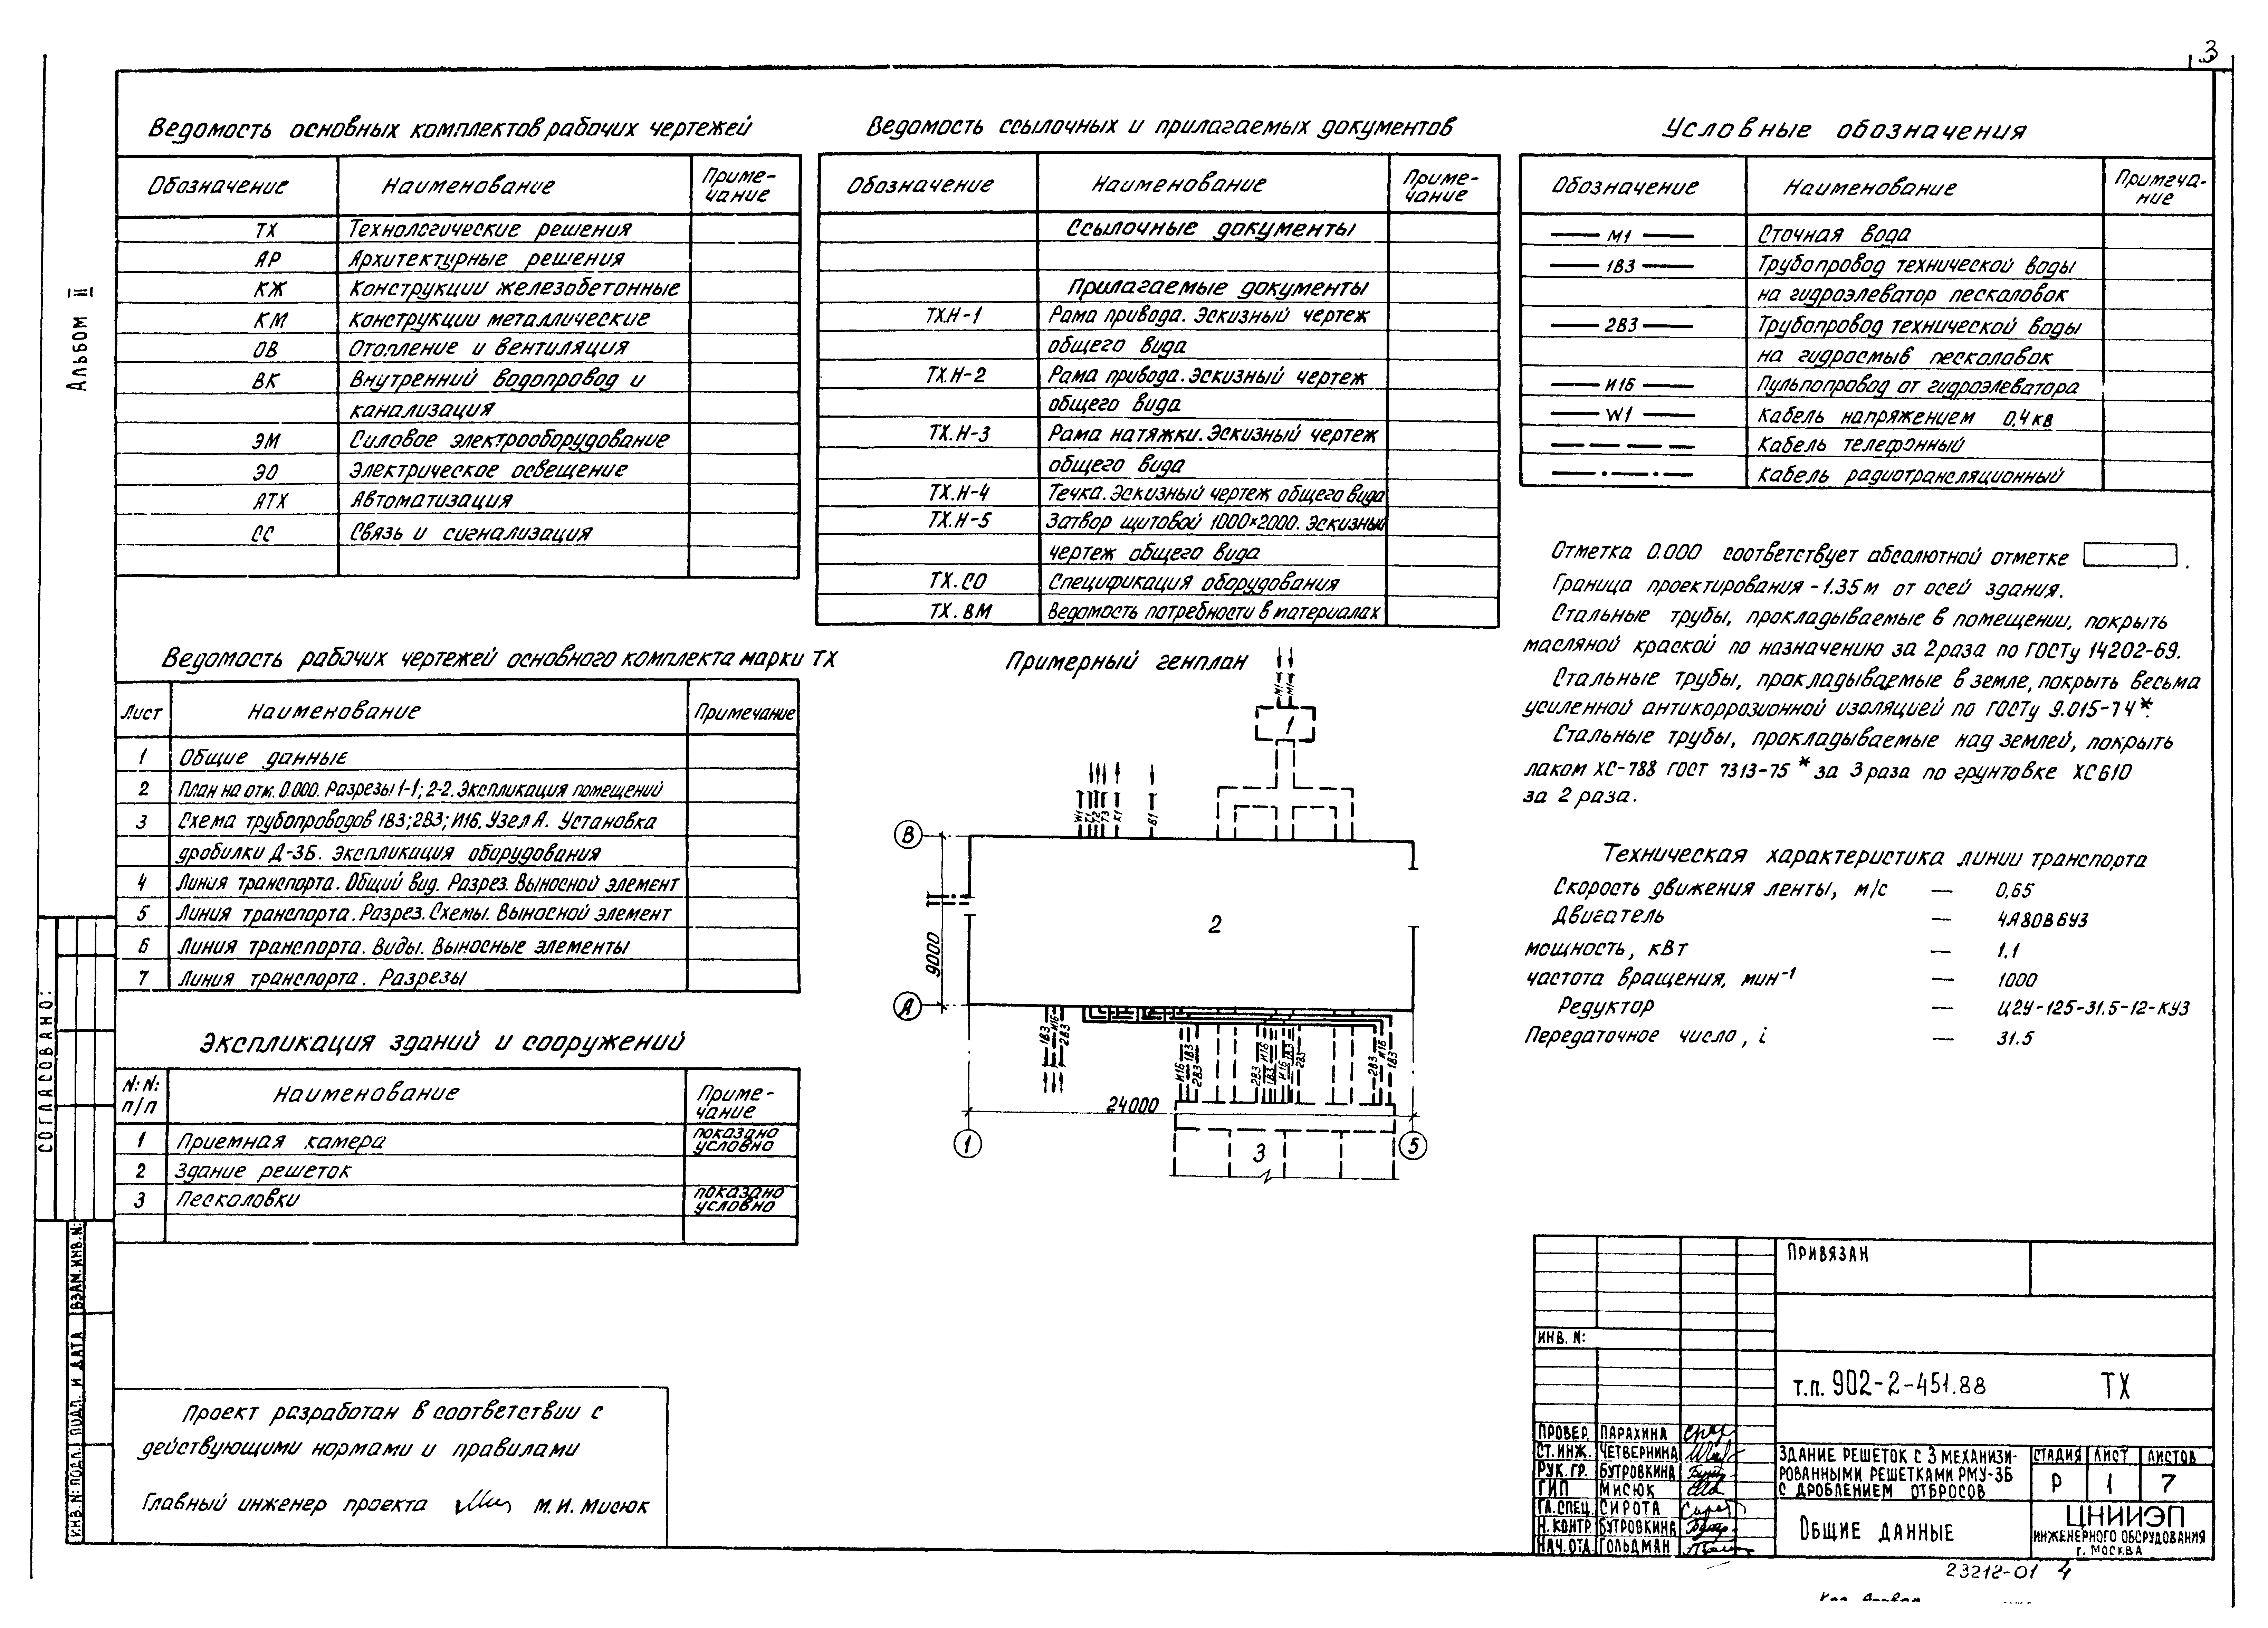 3
Альбом II
Ведомость основных комплектов рабочих чертежей
Обозначение Наименование Приме-
чание
ТХ Технологические решения
АР Архитектурные решения
КЖ Конструкции железобетонные
КМ Конструкции металлические
ОВ Отопление и вентиляция
ВК Внутренний водопровод и
канализация
ЭМ Силовое электрооборудование
ЭО Электрическое освещение
АТХ Автоматизация
СС Связь и сигнализация
Ведомость рабочих чертежей основного комплекта марки ТХ
Лист Наименование Примечание
1 Общие данные
2 План на отм. 0.000. Разрезы 1-1; 2-2. Экспликация помещений
3 Схема трубопроводов 1В3; 2В3; И16. Узел А. Установка
дробилки Д-3Б. Экспликация оборудования
4 Линия транспорта. Общий вид. Разрез. Выносной элемент
5 Линия транспорта. Разрез. Схемы. Выносной элемент
6 Линия транспорта. Виды. Выносные элементы
7 Линия транспорта. Разрезы
Экспликация зданий и сооружений
N: N:
п/п Наименование Приме-
чание
1 Приемная камера показано
условно
2 Здание решеток
3 Песколовки показано
условно
Проект разработан в соответствии с
действующими нормами и правилами
Главный инженер проекта М.И. Мисюк
Ведомость ссылочных и прилагаемых документов
Обозначение Наименование Приме-
чание
Ссылочные документы
Прилагаемые документы
ТХ.Н-1 Рама привода. Эскизный чертеж
общего вида
ТХ.Н-2 Рама привода. Эскизный чертеж
общего вида
ТХ.Н-3 Рама натяжки. Эскизный чертеж
общего вида
ТХ.Н-4 Течка. Эскизный чертеж общего вида
ТХ.Н-5 Затвор щитовой 1000×2000. Эскизный
чертеж общего вида
ТХ.СО Спецификация оборудования
ТХ.ВМ Ведомость потребности в материалах
Примерный генплан
М1 М1
1
W1 Т1 Т2 Т3 К1 В1
В
9000
2
А
1В3 И16 2В3
И16 1В3 2В3 2В3 1В3 И16 И16 1В3 2В3 2В3 И16 1В3
24000
1 3 5
Условные обозначения
Обозначение Наименование Примеча-
ние
М1 Сточная вода
1В3 Трубопровод технической воды
на гидроэлеватор песколовок
2В3 Трубопровод технической воды
на гидросмыв песколовок
И16 Пульпопровод от гидроэлеватора
W1 Кабель напряжением 0,4 кв
Кабель телефонный
Кабель радиотрансляционный
Отметка 0.000 соответствует абсолютной отметке .
Граница проектирования - 1.35 м от осей здания.
Стальные трубы, прокладываемые в помещении, покрыть
масляной краской по назначению за 2 раза по ГОСТу 14202-69.
Стальные трубы, прокладываемые в земле, покрыть весьма
усиленной антикоррозионной изоляцией по ГОСТу 9.015-74*.
Стальные трубы, прокладываемые над землей, покрыть
лаком ХС-788 ГОСТ 7313-75* за 3 раза по грунтовке ХС 610
за 2 раза.
Техническая характеристика линии транспорта
Скорость движения ленты, м/с — 0,65
Двигатель — 4А80В6У3
мощность, кВт — 1.1
частота вращения, мин-1 — 1000
Редуктор — Ц2У-125-31.5-12-КУ3
Передаточное число, i — 31.5
СОГЛАСОВАНО:
ИНВ. N: ПОДЛ. ПОДП. И ДАТА ВЗАМ. ИНВ. N:
ПРИВЯЗАН
ИНВ. N:
Т.П. 902-2-451.88 ТХ
ПРОВЕР. ПАРАХИНА
СТ. ИНЖ. ЧЕТВЕРНИНА
РУК. ГР. БУТРОВКИНА
ГИП МИСЮК
ГЛ. СПЕЦ. СИРОТА
Н. КОНТР. БУТРОВКИНА
НАЧ. ОТД. ГОЛЬДМАН
ЗДАНИЕ РЕШЕТОК С 3 МЕХАНИЗИ-
РОВАННЫМИ РЕШЕТКАМИ РМУ-3Б
С ДРОБЛЕНИЕМ ОТБРОСОВ
СТАДИЯ ЛИСТ ЛИСТОВ
Р 1 7
ОБЩИЕ ДАННЫЕ
ЦНИИЭП
ИНЖЕНЕРНОГО ОБОРУДОВАНИЯ
Г. МОСКВА
23212-01 4